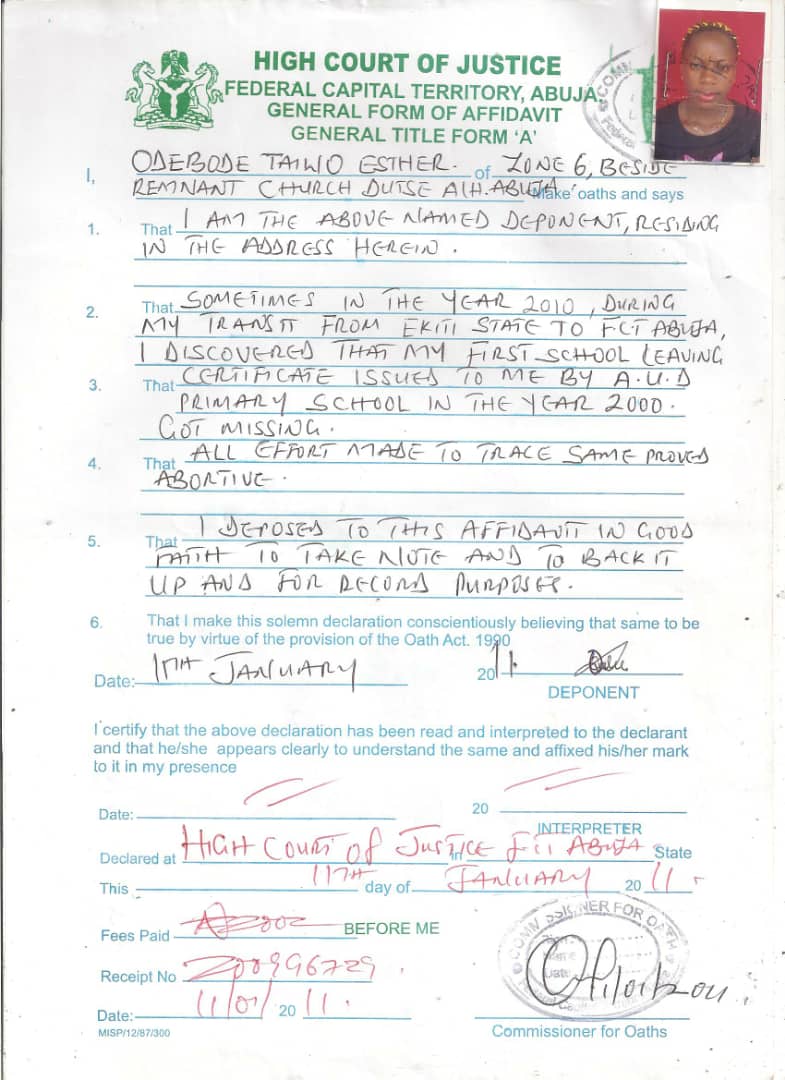 HIGH COURT OF JUSTICE
FEDERAL CAPITAL TERRITORY, ABUJA
GENERAL FORM OF AFFIDAVIT
GENERAL TITLE FORM 'A'
I, ODEBODE TAIWO ESTHER. of ZONE 6, BESIDE
REMNANT CHURCH DUTSE ALH. ABUJA Make oaths and says
1. That I AM THE ABOVE NAMED DEPONENT, RESIDING
IN THE ADDRESS HEREIN.
2. That SOMETIMES IN THE YEAR 2010, DURING
MY TRANSIT FROM EKITI STATE TO FCT ABUJA,
I DISCOVERED THAT MY FIRST SCHOOL LEAVING
3. That CERTIFICATE ISSUED TO ME BY A.U.D
PRIMARY SCHOOL IN THE YEAR 2000.
GOT MISSING.
4. That ALL EFFORT MADE TO TRACE SAME PROVED
ABORTIVE.
5. That I DEPOSED TO THIS AFFIDAVIT IN GOOD
FAITH TO TAKE NOTE AND TO BACK IT
UP AND FOR RECORD PURPOSES.
6. That I make this solemn declaration conscientiously believing that same to be
true by virtue of the provision of the Oath Act. 1990
Date: 11TH JANUARY 2011.
DEPONENT
I certify that the above declaration has been read and interpreted to the declarant
and that he/she appears clearly to understand the same and affixed his/her mark
to it in my presence
Date: 20
INTERPRETER
Declared at HIGH COURT OF JUSTICE in FCT ABUJA State
This 11TH day of JANUARY 2011.
Fees Paid BEFORE ME
COMMISSIONER FOR OATH
Receipt No 200996729
Date: 11/01/2011.
MISP/12/87/300 Commissioner for Oaths